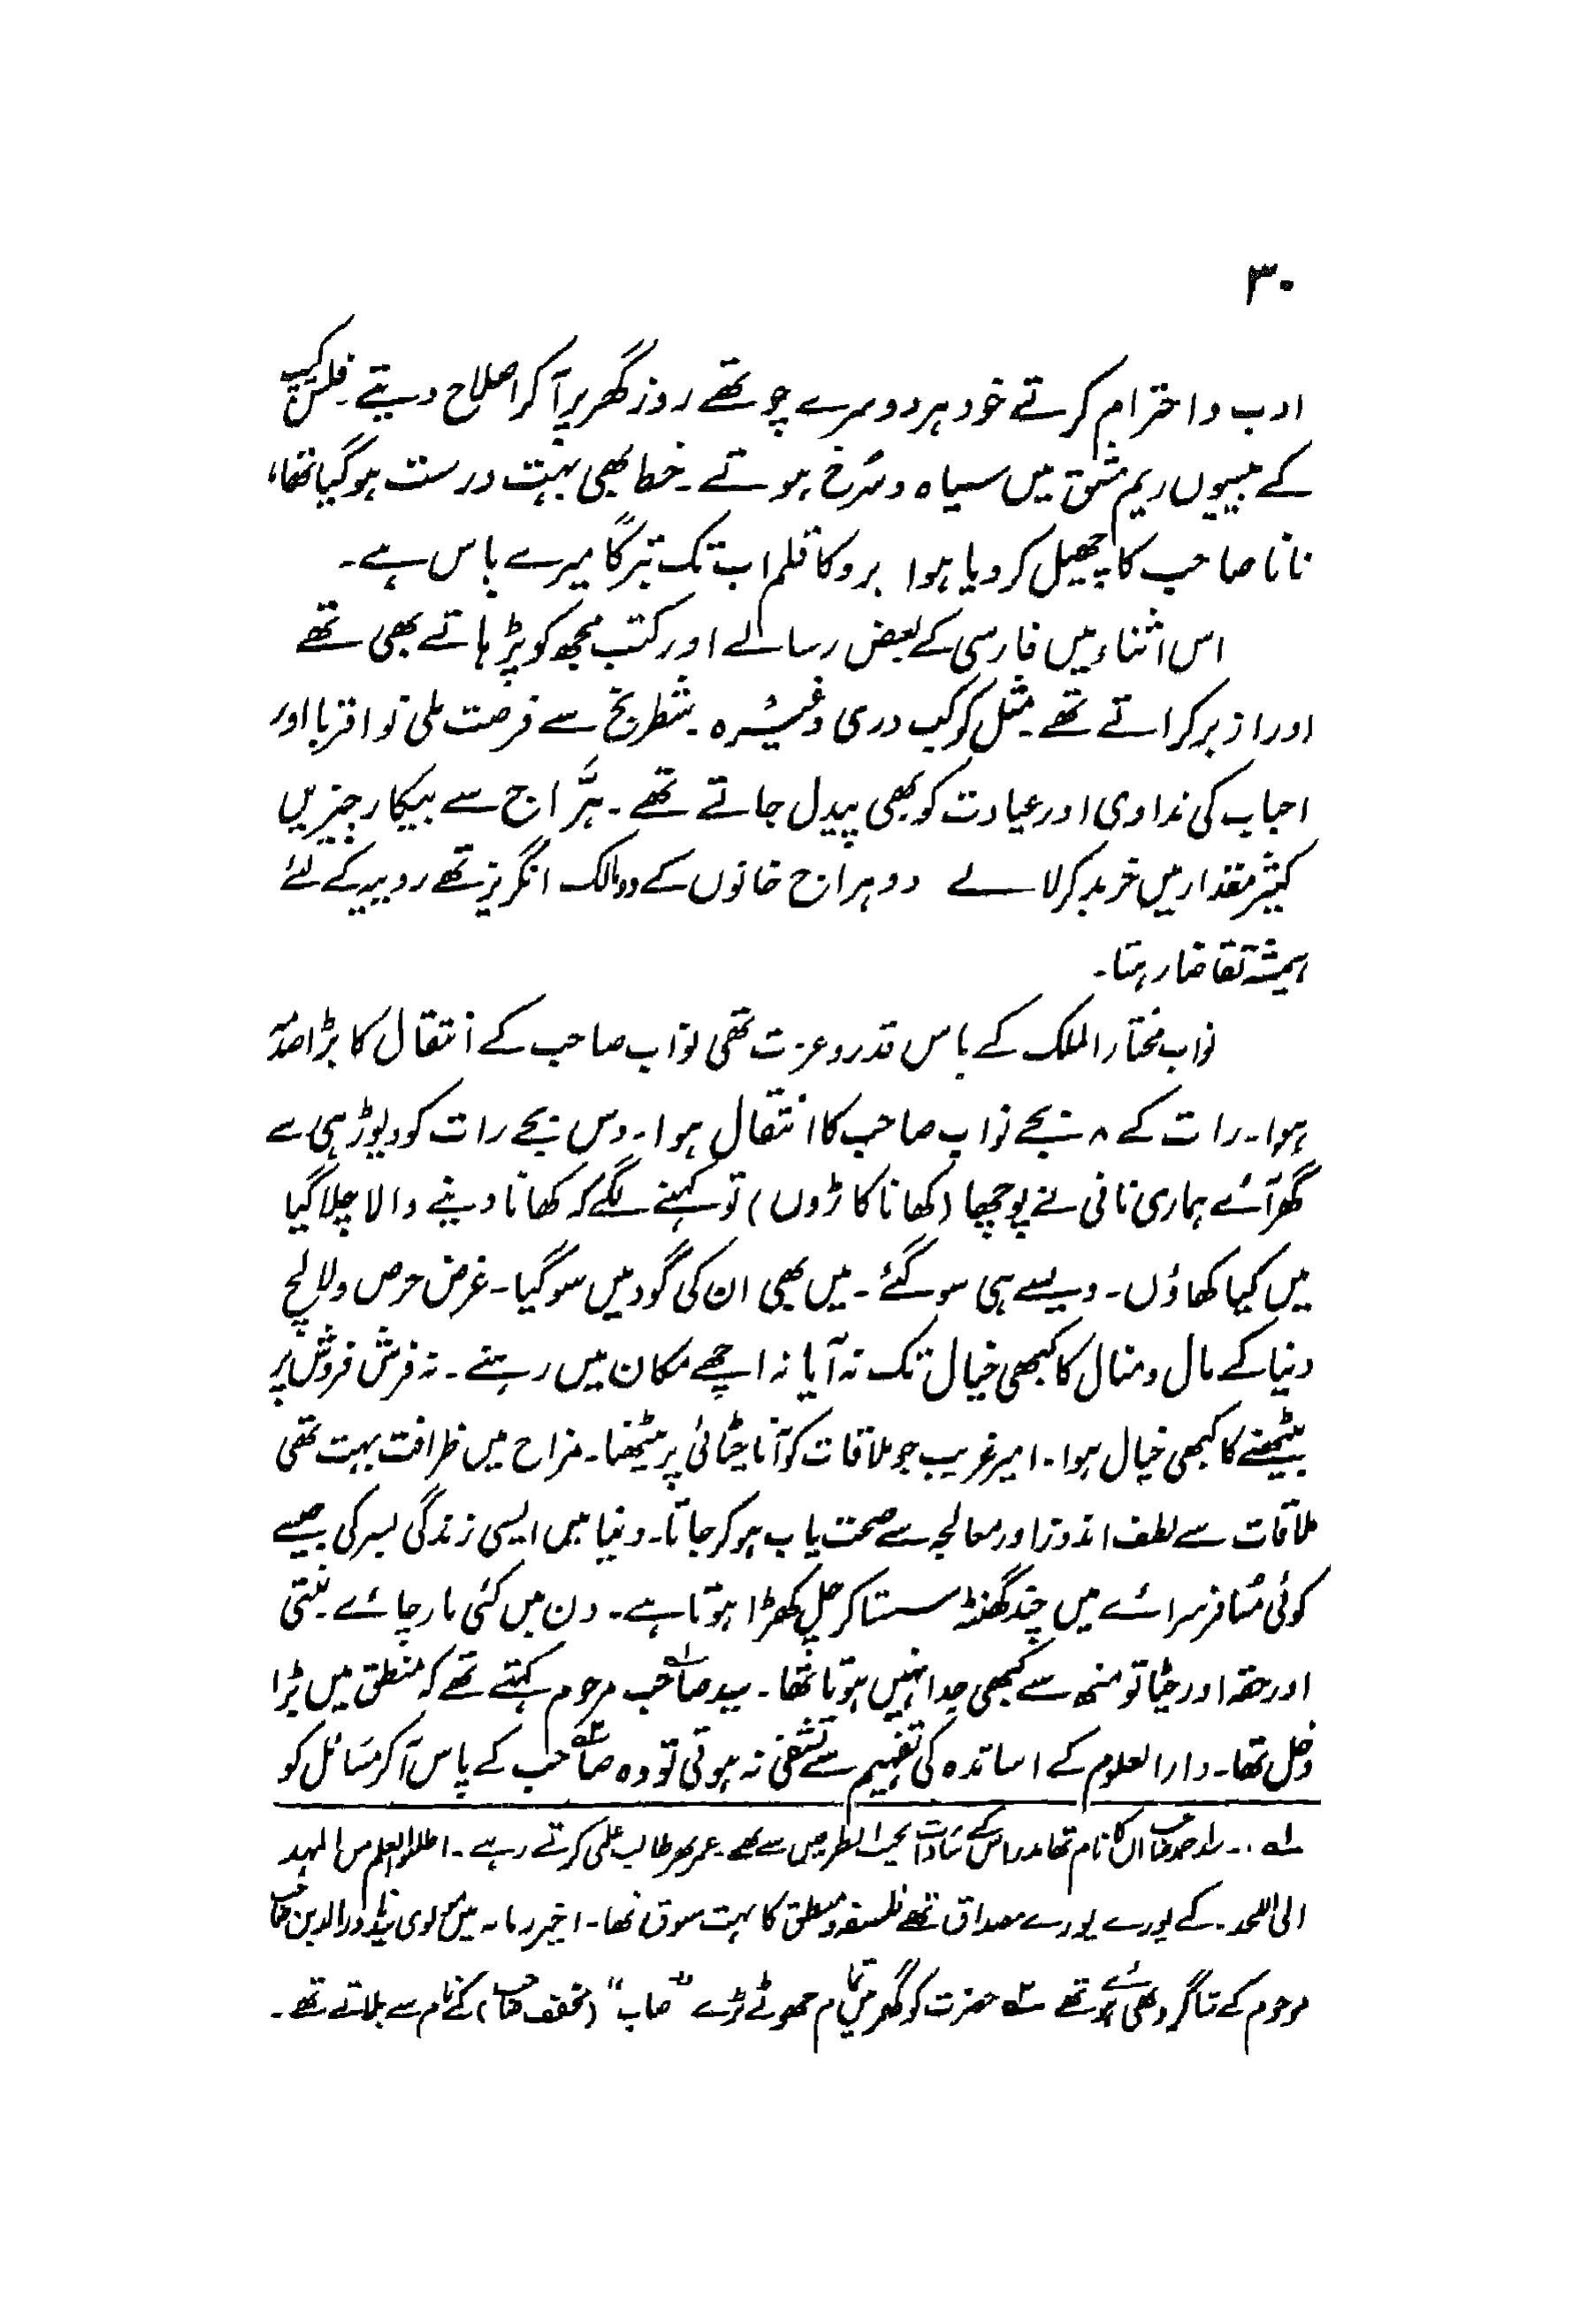 ۳۰
ادب واحترام کرتے خود ہر دوسرے چوتھے روز گھر پر آکر اصلاح دیتے۔ فلس کیپ
کے بیسیوں ریم مشق میں سیاہ وسُرخ ہوتے۔ خط بھی بہت درست ہوگیا تھا،
نانا صاحب کا چھیل کر دیا ہوا برو کا قلم اب تک تبرکاً میرے پاس ہے۔
اس اثناء میں فارسی کے بعض رسالے اور کتب مجھ کو پڑہاتے بھی تھے
اور ازبر کراتے تھے۔ مثل کوکب دری وغیرہ۔ شطرنج سے فرصت ملی تو اقربا اور
احباب کی نداوی اور عیادت کو بھی پیدل جاتے تھے۔ ہرّاج سے بیکار چیزیں
کثیر مقدار میں خرید کر لاتے دو ہراج خانوں کے دو مالک انگریز تھے روپیہ کے لئے
ہمیشہ تقاضا رہتا۔
نواب مختار الملک کے پاس قدر وعزت تھی نواب صاحب کے انتقال کا بڑا صدمہ
ہوا۔ رات کے ۸ بجے نواب صاحب کا انتقال ہوا۔ دس بجے رات کو دیوڑہی سے
گھر آئے ہماری نانی نے پوچھا (کھانا کاڑوں) تو کہنے لگے کہ کھانا دینے والا چلا گیا
میں کیا کھاؤں۔ ویسے ہی سو گئے۔ میں بھی ان کی گود میں سوگیا۔ غرض حرص ولالچ
دنیا کے مال ومنال کا کبھی خیال تک نہ آیا نہ اچھے مکان میں رہنے۔ نہ فرش فروش پر
بیٹھنے کا کبھی خیال ہوا۔ امیر غریب جو ملاقات کو آتا چٹائی پر بیٹھتا۔ مزاح میں ظرافت بہت تھی
ملاقات سے لطف اندوز اور معالجہ سے صحت یاب ہو کر جاتا۔ دنیا میں ایسی زندگی بسر کی جیسے
کوئی مُسافر سرائے میں چند گھنٹہ سستا کر چل کھڑا ہوتا ہے۔ دن میں کئی بار چائے بنتی
اور حقہ اور چٹا تو منھ سے کبھی جدا نہیں ہوتا تھا۔ سید صاحب۱ مرحوم کہتے تھے کہ منطق میں بڑا
دخل تھا۔ دارالعلوم کے اساتدہ کی تفہیم سے تشفی نہ ہوتی تو وہ صاحب۲ کے پاس آکر مسَائل کو
۱؎ .. صاحب ان کا نام تھا مدراس کے سادات سے تھے۔ عمر بھر طالب علمی کرتے رہے۔ اطلبوا العلم من المہد
الی اللحد۔ کے پورے پورے مصداق تھے فلسفہ ومنطق کا بہت شوق تھا۔ اخیر زمانہ میں مولوی الدین صاحب
مرحوم کے شاگرد بھی ہوئے تھے ۲؎ حضرت کو گھر میں تمام چھوٹے بڑے "صاب" (مخفف صاحب) کے نام سے بلاتے تھے۔